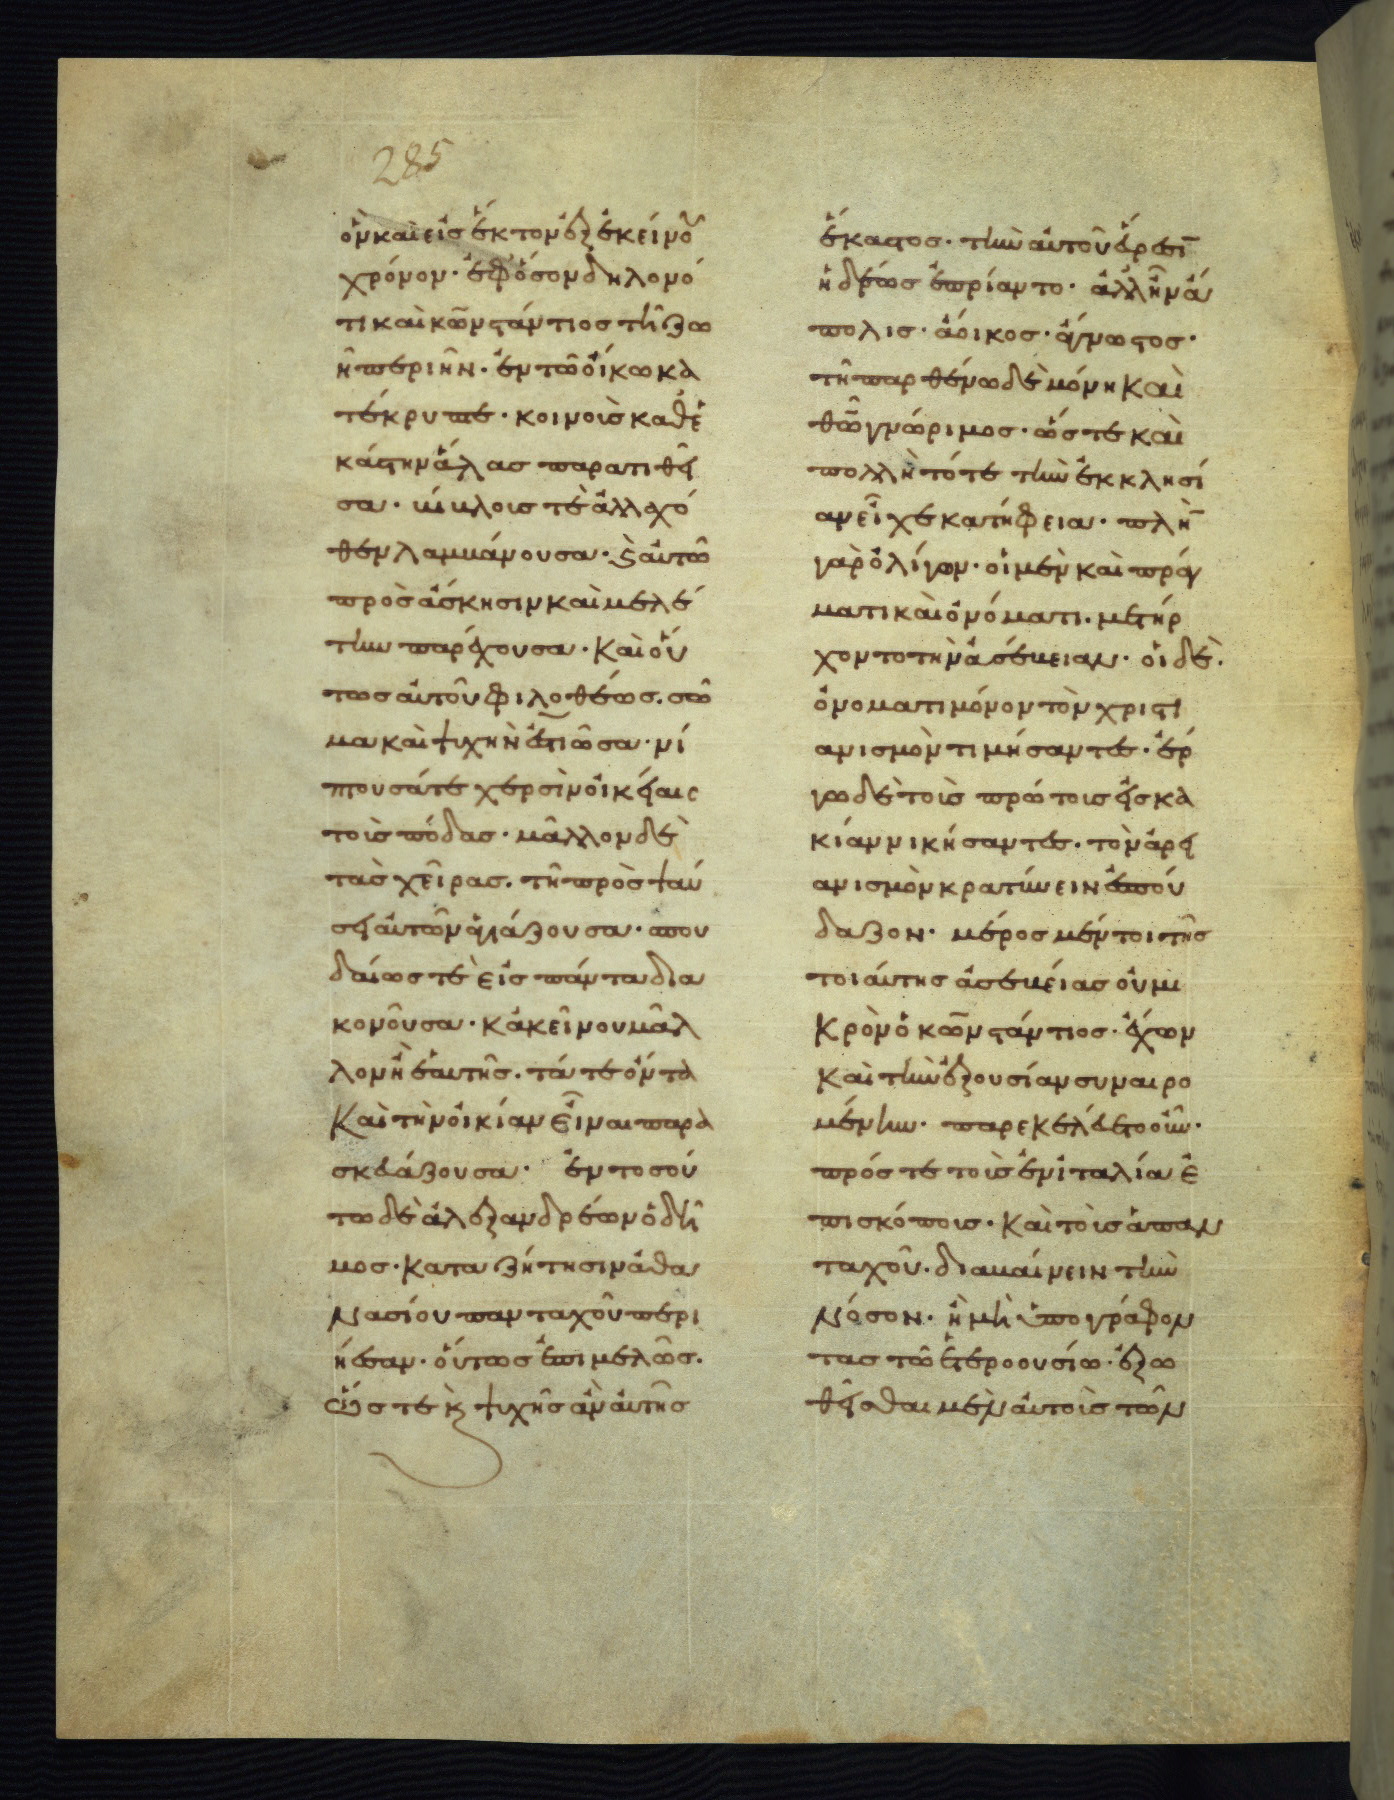 285
ὃν καὶ εἰς ἕκτον ἐξ ἐκείνου
χρόνον· ἐφ' ὅσον δηλονό
τι καὶ κωνστάντιος τῆ ζω
ῆ περιῆν· ἐν τῶ οἴκω κα
τέκρυπτε· κοινοῖς καθ' ἑ
κάστην ἅλας παρατιθεῖ
σα·
θεν λαμβάνουσα· καὶ αὐτῶ
πρὸς ἄσκησιν καὶ μελέ
την παρέχουσα· Καὶ οὕ
τως αὐτοῦ φιλοθέως. σῶ
μα καὶ ψυχὴν ἑστιῶσα· νί
πτουσά τε χερσὶν οἰκείαις
τοῖς πόδας· μᾶλλον δὲ
τὰς χεῖρας. τῆ προσψαύ
σει αὐτῶν ἁγιάζουσα· σπου
δαίως τὲ εἰς πάντα δια
κονοῦσα· κἀκείνου μᾶλ
λον ἢ ἑαυτῆς. τά τε ὄντα
Καὶ τὴν οἰκίαν εἶναι παρα
σκευάζουσα· ἐν τοσού
τω δὲ ἀλεξανδρέων ὁ δῆ
μος· κατα ζήτησιν ἀθα
νασίου πανταχοῦ περι
ήεσαν· οὕτως ἐπιμελῶς.
ὥς τε καὶ ψυχῆς ἂν αὐτῆς
ἕκαστος· τὴν αὐτοῦ εὕρεσιν
ἡδέως ἐπρίαντο· ἀλλ' ἦν ἄ
πολις· ἄοικος· ἄγνωστος·
τῆ παρθένω δὲ μόνη Καὶ
θεῶ γνώριμος· ὥς τε καὶ
πολλὴ τότε τὴν ἐκκλησί
αν εἶχε κατήφεια· πλὴν
γὰρ ὀλίγων· οἱ μὲν καὶ πράγ
ματι καὶ ὀνόματι. μετήρ
χοντο τὴν ἀσέβειαν· οἱ δὲ.
ὀνόματι μόνον τὸν χριστι
ανισμὸν τιμήσαντες· ἔρ
γω δὲ τοῖς πρώτοις εἰς κα
κίαν νικήσαντες. τὸν ἀρει
ανισμὸν κρατύνειν ἐσπού
δαζον· μέρος μέντοι τῆς
τοιαύτης ἀσεβείας οὐ μι
Κρὸν ὁ κωνστάντιος· ἔχων
Καὶ τὴν ἐξουσίαν συναιρο
μένην· παρεκελεύετο οὖν·
πρός τε τοῖς ἐν ἰταλία ἐ
πισκόποις· Καὶ τοῖς ἁπαν
ταχοῦ. διαβαίνειν τὴν
νόσον· ἢ μὴ ὑπογράφον
τας τῶ ἑτεροουσίω· ἐξω
θεῖσθαι μὲν αὐτοὶς τῶν